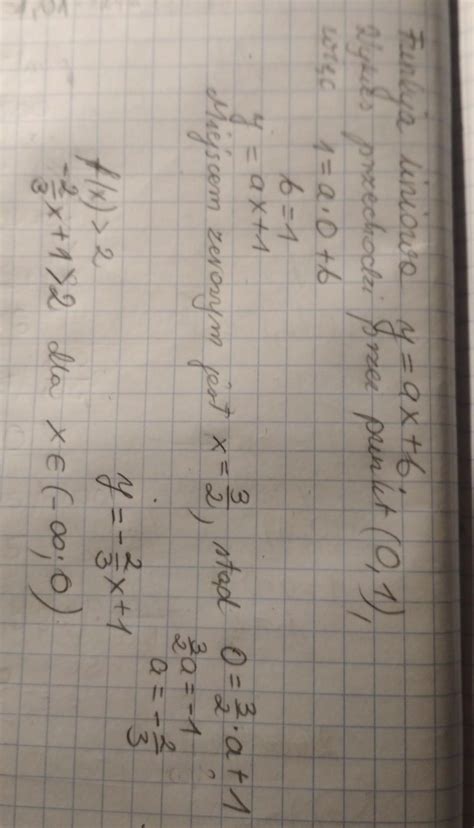 Funkcja liniowa y = ax + b.
Wykres przechodzi przez punkt (0,1),
więc 1 = a·0 + b
b = 1
y = ax + 1
Miejscem zerowym jest x = 3/2, stąd 0 = 3/2 · a + 1
3/2 a = -1
a = -2/3
y = -2/3 x + 1
f(x) > 2
-2/3 x + 1 > 2 dla x ∈ (-∞; 0)